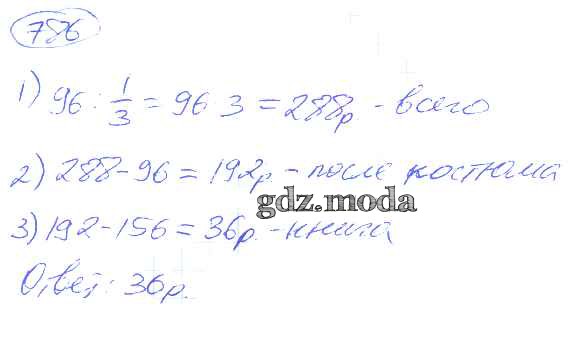 786
1) 96 : 1/3 = 96 3 = 288р - всего
2) 288 - 96 = 192р - после костюма
gdz.moda
3) 192 - 156 = 36р. - книга
Ответ: 36р.